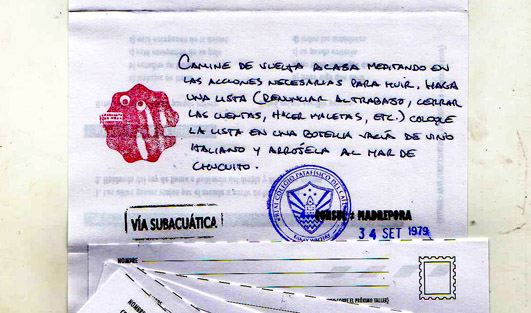 CAMINE DE VUELTA A CASA MEDITANDO EN
LAS ACCIONES NECESARIAS PARA HUIR. HAGA
UNA LISTA (RENUNCIAR AL TRABAJO, CERRAR
LAS CUENTAS, HACER MALETAS, ETC.) COLOQUE
LA LISTA EN UNA BOTELLA VACÍA DE VINO
ITALIANO Y ARRÓJELA AL MAR DE
CHUCUITO.
VÍA SUBACUÁTICA
CONSUL MADREPORA
34 SET 1979
NOMBRE
NOMBRE
EL PRÓXIMO TALLER)